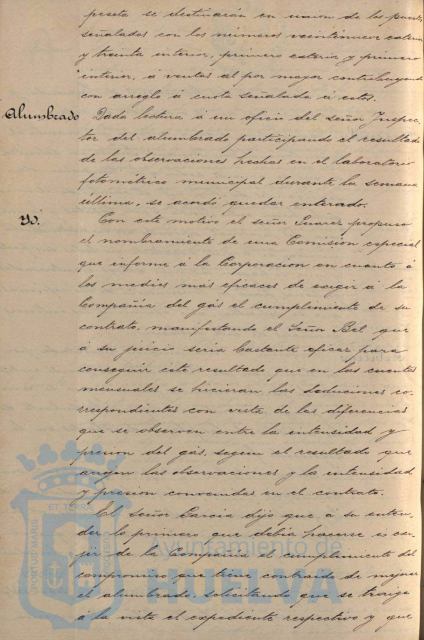 peseta se destinarán en union de los puestos
señalados con los números veintinueve exterior
y treinta interior, primero exterior y primero
interior, á ventas al por mayor contribuyendo
con arreglo á cuota señalada á estos.
Alumbrado Dada lectura á un oficio del señor Inspec-
tor del alumbrado participando el resultado
de las observaciones hechas en el laboratorio
fotométrico municipal durante la semana
última, se acordó quedar enterado.
Yd. Con este motivo el señor Suarez propuso
el nombramiento de una Comisión especial
que informe á la Corporacion en cuanto á
los medios mas eficaces de exigir á la
Compañía del gas el cumplimiento de su
contrato, manifestando el Señor Bel que
á su juicio seria bastante eficaz para
conseguir este resultado que en las cuentas
mensuales se hicieran las deduciones co-
rrespondientes con vista de las diferencias
que se observen entre la intensidad y
presion del gas, segun el resultado que
arrojen las observaciones y la intensidad
y presion convenidas en el contrato.
El Señor García dijo que á su enten-
der lo primero que debia hacerse es exi-
jir de la Compañía el cumplimiento del
compromiso que tiene contraido de mejorar
el alumbrado, solicitando que se traiga
á la vista el expediente respectivo y que
PORTUS MARIS ET TERRAE CUSTODIA
Ayuntamiento de
HUELVA